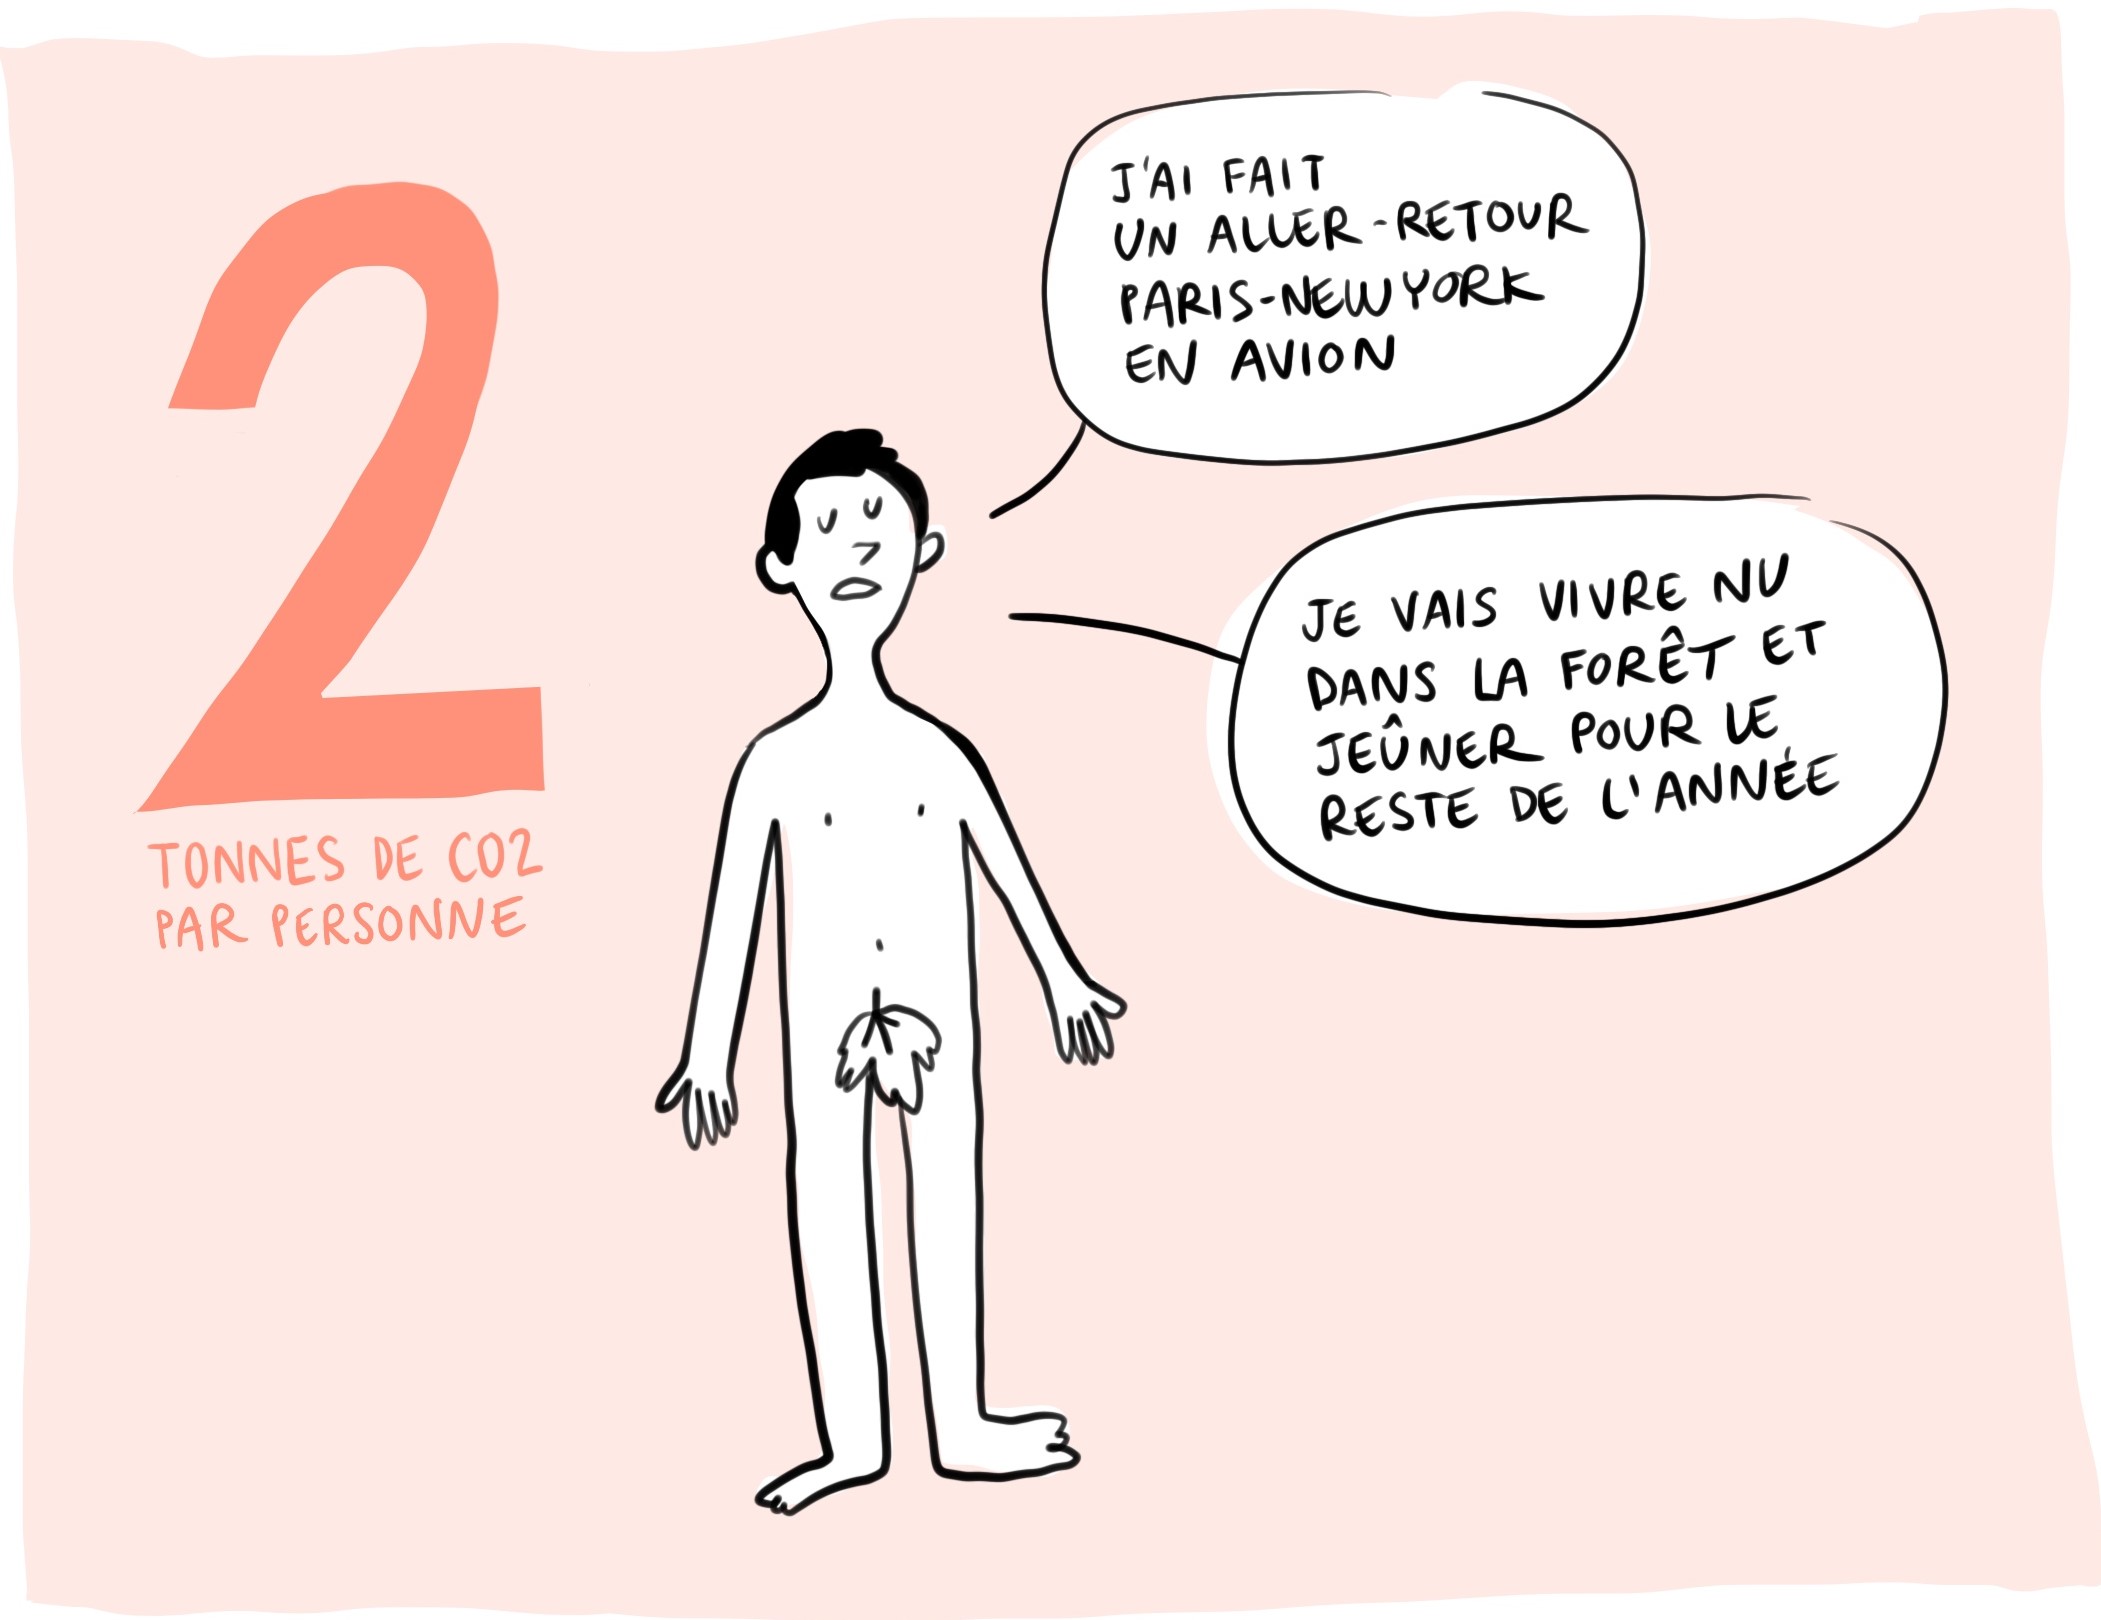 2
TONNES DE CO2
PAR PERSONNE
J'AI FAIT
UN ALLER-RETOUR
PARIS-NEW YORK
EN AVION
JE VAIS VIVRE NU
DANS LA FORÊT ET
JEÛNER POUR LE
RESTE DE L'ANNÉE